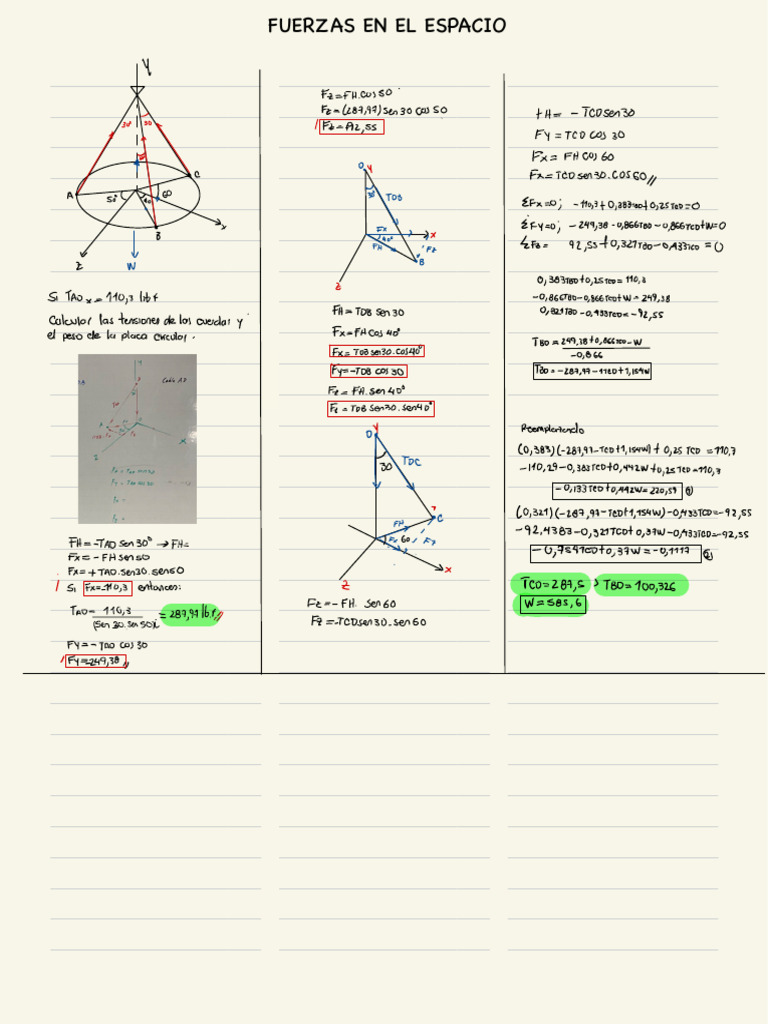 FUERZAS EN EL ESPACIO
Y
30°
30
A
50°
40
60
C
B
Z
X
W
Si TADx = 110,3 lb f
Calcular las tensiones de las cuerdas y
el peso de la placa circular.
Cable AD
FH = -TAD sen 30° → FH =
Fx = -FH sen 50
Fx = + TAD. sen 30. sen 50
Si Fx = -110,3 entonces:
TAD = 110,3 / (sen 30. sen 50) = 287,97 lb.f
FY = -TAD cos 30
FY = -249,38
Fz = FH. cos 50
Fz = (287,97) sen 30 cos 50
Fz = 92,55
D Y
30
TDB
Fx
X
40°
FH
Fz
B
Z
FH = TDB sen 30
Fx = FH cos 40°
Fx = TDB sen 30. cos 40°
FY = -TDB cos 30
Fz = FH. sen 40°
Fz = TDB sen 30. sen 40°
Y
D
TDC
30
C
FH
60
X
Z
Fz = - FH. sen 60
Fz = -TCD sen 30. sen 60
FH = - TCD sen 30
FY = TCD cos 30
Fx = FH cos 60
Fx = TCD sen 30. COS 60
ΣFx = 0; -110,3 + 0,383 TBD + 0,25 TCD = 0
ΣFY = 0; - 249,38 - 0,866 TBD - 0,866 TCD + W = 0
ΣFz = 92,55 + 0,321 TBD - 0,433 TCD = 0
0,383 TBD + 0,25 TCD = 110,3
-0,866 TBD - 0,866 TCD + W = 249,38
0,321 TBD - 0,433 TCD = - 92,55
TBD = 249,38 + 0,866 TCD - W
-0,866
TBD = -287,97 - TCD + 1,154 W
Reemplazando
(0,383)(-287,97 - TCD + 1,154 W) + 0,25 TCD = 110,7
-110,29 - 0,383 TCD + 0,442 W + 0,25 TCD = 110,7
- 0,133 TCD + 0,442 W = 220,59
(0,321)(-287,97 - TCD + 1,154 W) - 0,433 TCD = -92,55
-92,4383 - 0,321 TCD + 0,37 W - 0,433 TCD = -92,55
- 0,754 TCD + 0,37 W = -0,1117
TCD = 287,5 , TBD = 100,326
W = 585,6